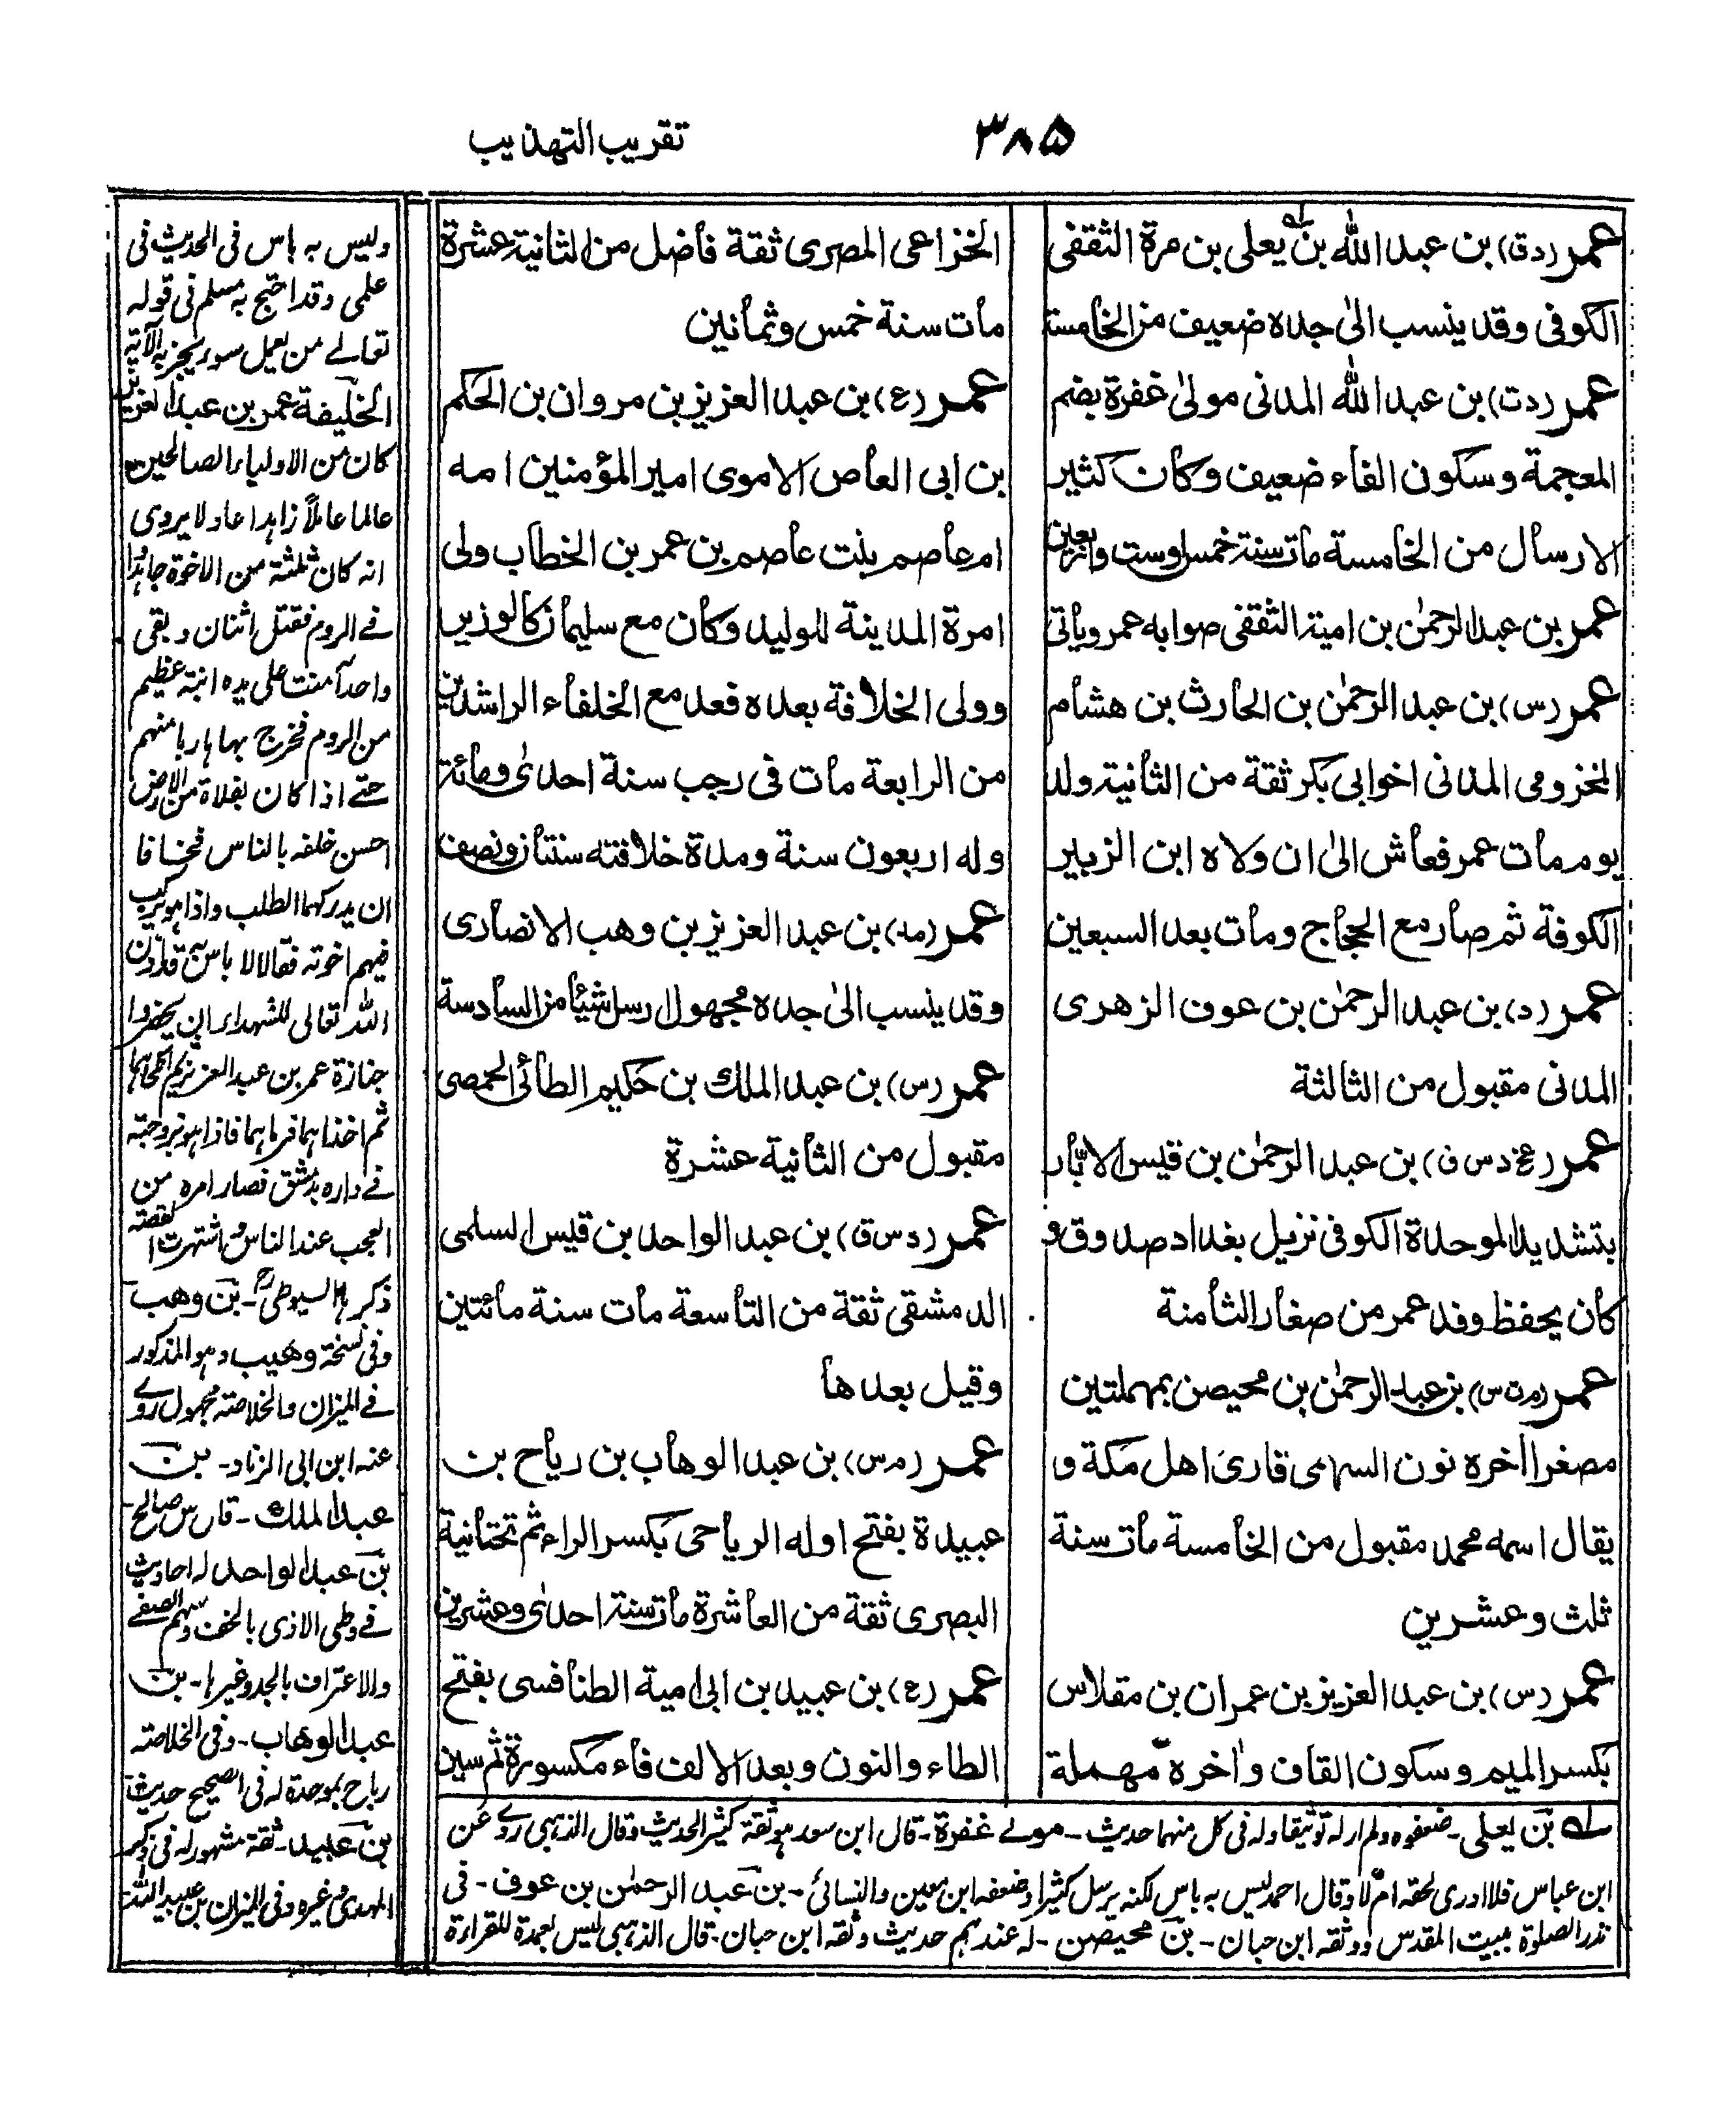 ٣٨٥
تقريب التهذيب
عمر (د ق) بن عبد الله بن يعلى بن مرة الثقفى
الكوفى وقد ينسب الىٰ جده ضعيف من الخامسة
عمر (د ت) بن عبد الله المدنى مولىٰ غفرة بضم
المعجمة وسكون الفاء ضعيف وكان كثير
الارسال من الخامسة مات سنة خمس اوست واربعين
عمر بن عبد الرحمٰن بن امية الثقفى صوابه عمرو ياتى
عمر (س) بن عبد الرحمٰن بن الحارث بن هشام
المخزومى المدنى اخوابى بكر ثقة من الثانية ولد
يوم مات عمر فعاش الىٰ ان ولاه ابن الزبير
الكوفة ثم صار مع الحجاج ومات بعد السبعين
عمر (د) بن عبد الرحمٰن بن عوف الزهرى
المدنى مقبول من الثالثة
عمر (عخ د س ق) بن عبد الرحمٰن بن قيس الابّار
بتشديد الموحدة الكوفى نزيل بغداد صدوق و
كان يحفظ وفد عمر من صغار الثامنة
عمر (م ت س) بن عبد الرحمٰن بن محيصن بمهملتين
مصغرا أخره نون السهمى قارئ اهل مكة و
يقال اسمه محمد مقبول من الخامسة مات سنة
ثلث وعشرين
عمر (س) بن عبد العزيز بن عمران بن مقلاص
بكسر الميم وسكون القاف وأخره مهملة
الخزاعى المصرى ثقة فاضل من الثانية عشرة
مات سنة خمس وثمانين
عمر (ع) بن عبد العزيز بن مروان بن الحكم
بن ابى العاص الاموى امير المؤمنين امه
ام عاصم بنت عاصم بن عمر بن الخطاب ولى
امرة المدينة للوليد وكان مع سليمان كالوزير
وولى الخلافة بعده فعد مع الخلفاء الراشدين
من الرابعة مات فى رجب سنة احدىٰ ومائة
وله اربعون سنة ومدة خلافته سنتان ونصف
عمر (مد) بن عبد العزيز بن وهب الانصارى
وقد ينسب الىٰ جده مجهول رسل شيئا من السادسة
عمر (س) بن عبد الملك بن حكيم الطائى الحمصى
مقبول من الثانية عشرة
عمر (د س ق) بن عبد الواحد بن قيس السلمى
الدمشقى ثقة من التاسعة مات سنة مائتين
وقيل بعدها
عمر (م س) بن عبد الوهاب بن رياح بن
عبيدة بفتح اوله الرياحى بكسر الراء ثم تحتانية
البصرى ثقة من العاشرة مات سنة احدىٰ وعشرين
عمر (ع) بن عبيد بن ابى امية الطنافسى بفتح
الطاء والنون وبعد الالف فاء مكسورة ثم سين
له بن يعلى - ضعفوه ولم ار له توثيقا وله فى كل منهما حديث - مولے غفرة - قال ابن سعد هو ثقة كثير الحديث وقال الذهبى روے عن
ابن عباس فلا ادرى لحقه ام لا وقال احمد ليس به باس لكنه يرسل كثيرا وضعفه ابن معين والنسائى - بن عبد الرحمٰن بن عوف - فى
نذر الصلوة ببيت المقدس ووثقه ابن حبان - بن محيصن - له عندهم حديث وثقه ابن حبان - قال الذهبى ليس بعمدة للقراءة
وليس به باس فى الحديث فى
علمى وقد احتج به مسلم فى قوله
تعالے من يعمل سوء يجز به الآية
الخليفة عمر بن عبد العزيز
كان من الاولياء الصالحين
عالما عاملاً زاهدا عادلا يروى
انه كان ثلثة من الاخوة جاهدوا
فے الروم فقتل اثنان وبقى
واحد آمنت على يده ابنة عظيم
من الروم فخرج بها هاربا منهم
حتے اذا كان بفلاة من الارض
احسن خلفه بالناس فخافا
ان يدركهما الطلب واذا هو بركب
فيهم اخوته فقالا لا باس بكم قد اذن
الله تعالى للشهداء ان يحضروا
جنازة عمر بن عبد العزيز
ثم اخذاهما فرماهما فاذا هو بزوجته
فے داره بدمشق فصار امره من
العجب عند الناس واشتهرت القصة
ذكرها السيوطى رح - بن وهب
وفى نسخة وهيب وهو المذكور
فے الميزان والخلاصة مجهول روے
عنه ابن ابى الزناد - بن
عبد الملك - قال س صالح
بن عبد الواحد له احاديث
فے وطى الاذى بالخف وسهم الصفے
والاعتراف بالجد وغيرها - بن
عبد الوهاب - وفى الخلاصة
رباح بموحدة له فى الصحيح حديث
بن عبيد - ثقة مشهور له فى ذكر
المهدى وغيره وفى الميزان بن عبيد الله